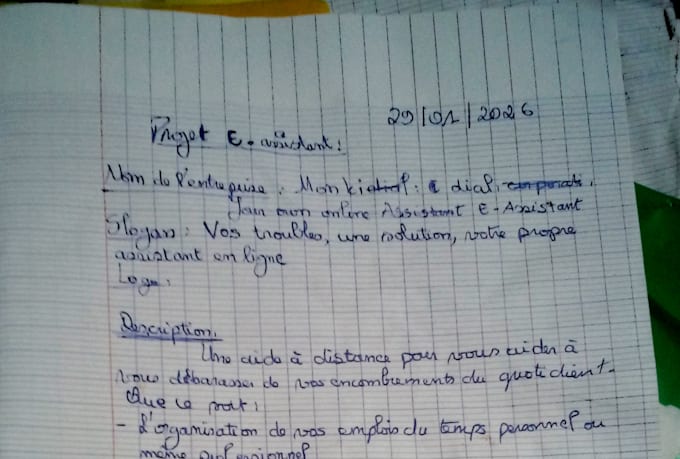 29/01/2026
Projet E-assistant :
Nom de l'entreprise : dial
online Assistant E-Assistant
Slogan : Vos troubles, une solution, votre propre
assistant en ligne
Logo :
Description.
Une aide à distance pour vous aider à
vous débarasser de vos encombrements du quotidient.
Que ce soit :
- L'organisation de vos emplois du temps personnel ou
même professionnel